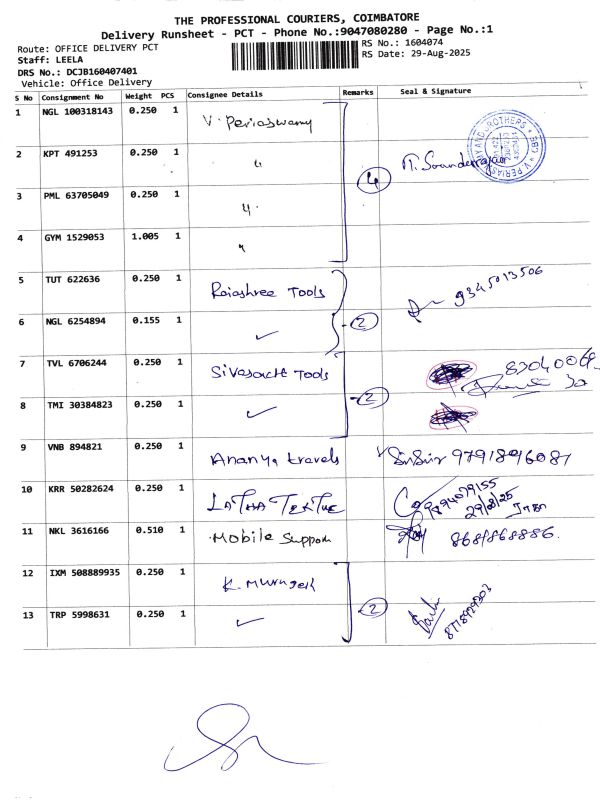 THE PROFESSIONAL COURIERS, COIMBATORE
Delivery Runsheet - PCT - Phone No.:9047080280 - Page No.:1
Route: OFFICE DELIVERY PCT
RS No.: 1604074
Staff: LEELA
RS Date: 29-Aug-2025
DRS No.: DCJB160407401
Vehicle: Office Delivery
S No Consignment No Weight PCS Consignee Details Remarks Seal & Signature
1 NGL 100318143 0.250 1 V. Periaswamy
2 KPT 491253 0.250 1 " 4
3 PML 63705049 0.250 1 "
4 GYM 1529053 1.005 1 "
5 TUT 622636 0.250 1 Rajashree Tools 9345013506
6 NGL 6254894 0.155 1 ✓ 2
7 TVL 6706244 0.250 1 Sivasacti Tools
8 TMI 30384823 0.250 1 ✓ 2
9 VNB 894821 0.250 1 Ananya travels
10 KRR 50282624 0.250 1 29/8/25
11 NKL 3616166 0.510 1 Mobile Support
12 IXM 508889935 0.250 1 K. Murugesh
13 TRP 5998631 0.250 1 ✓ 2